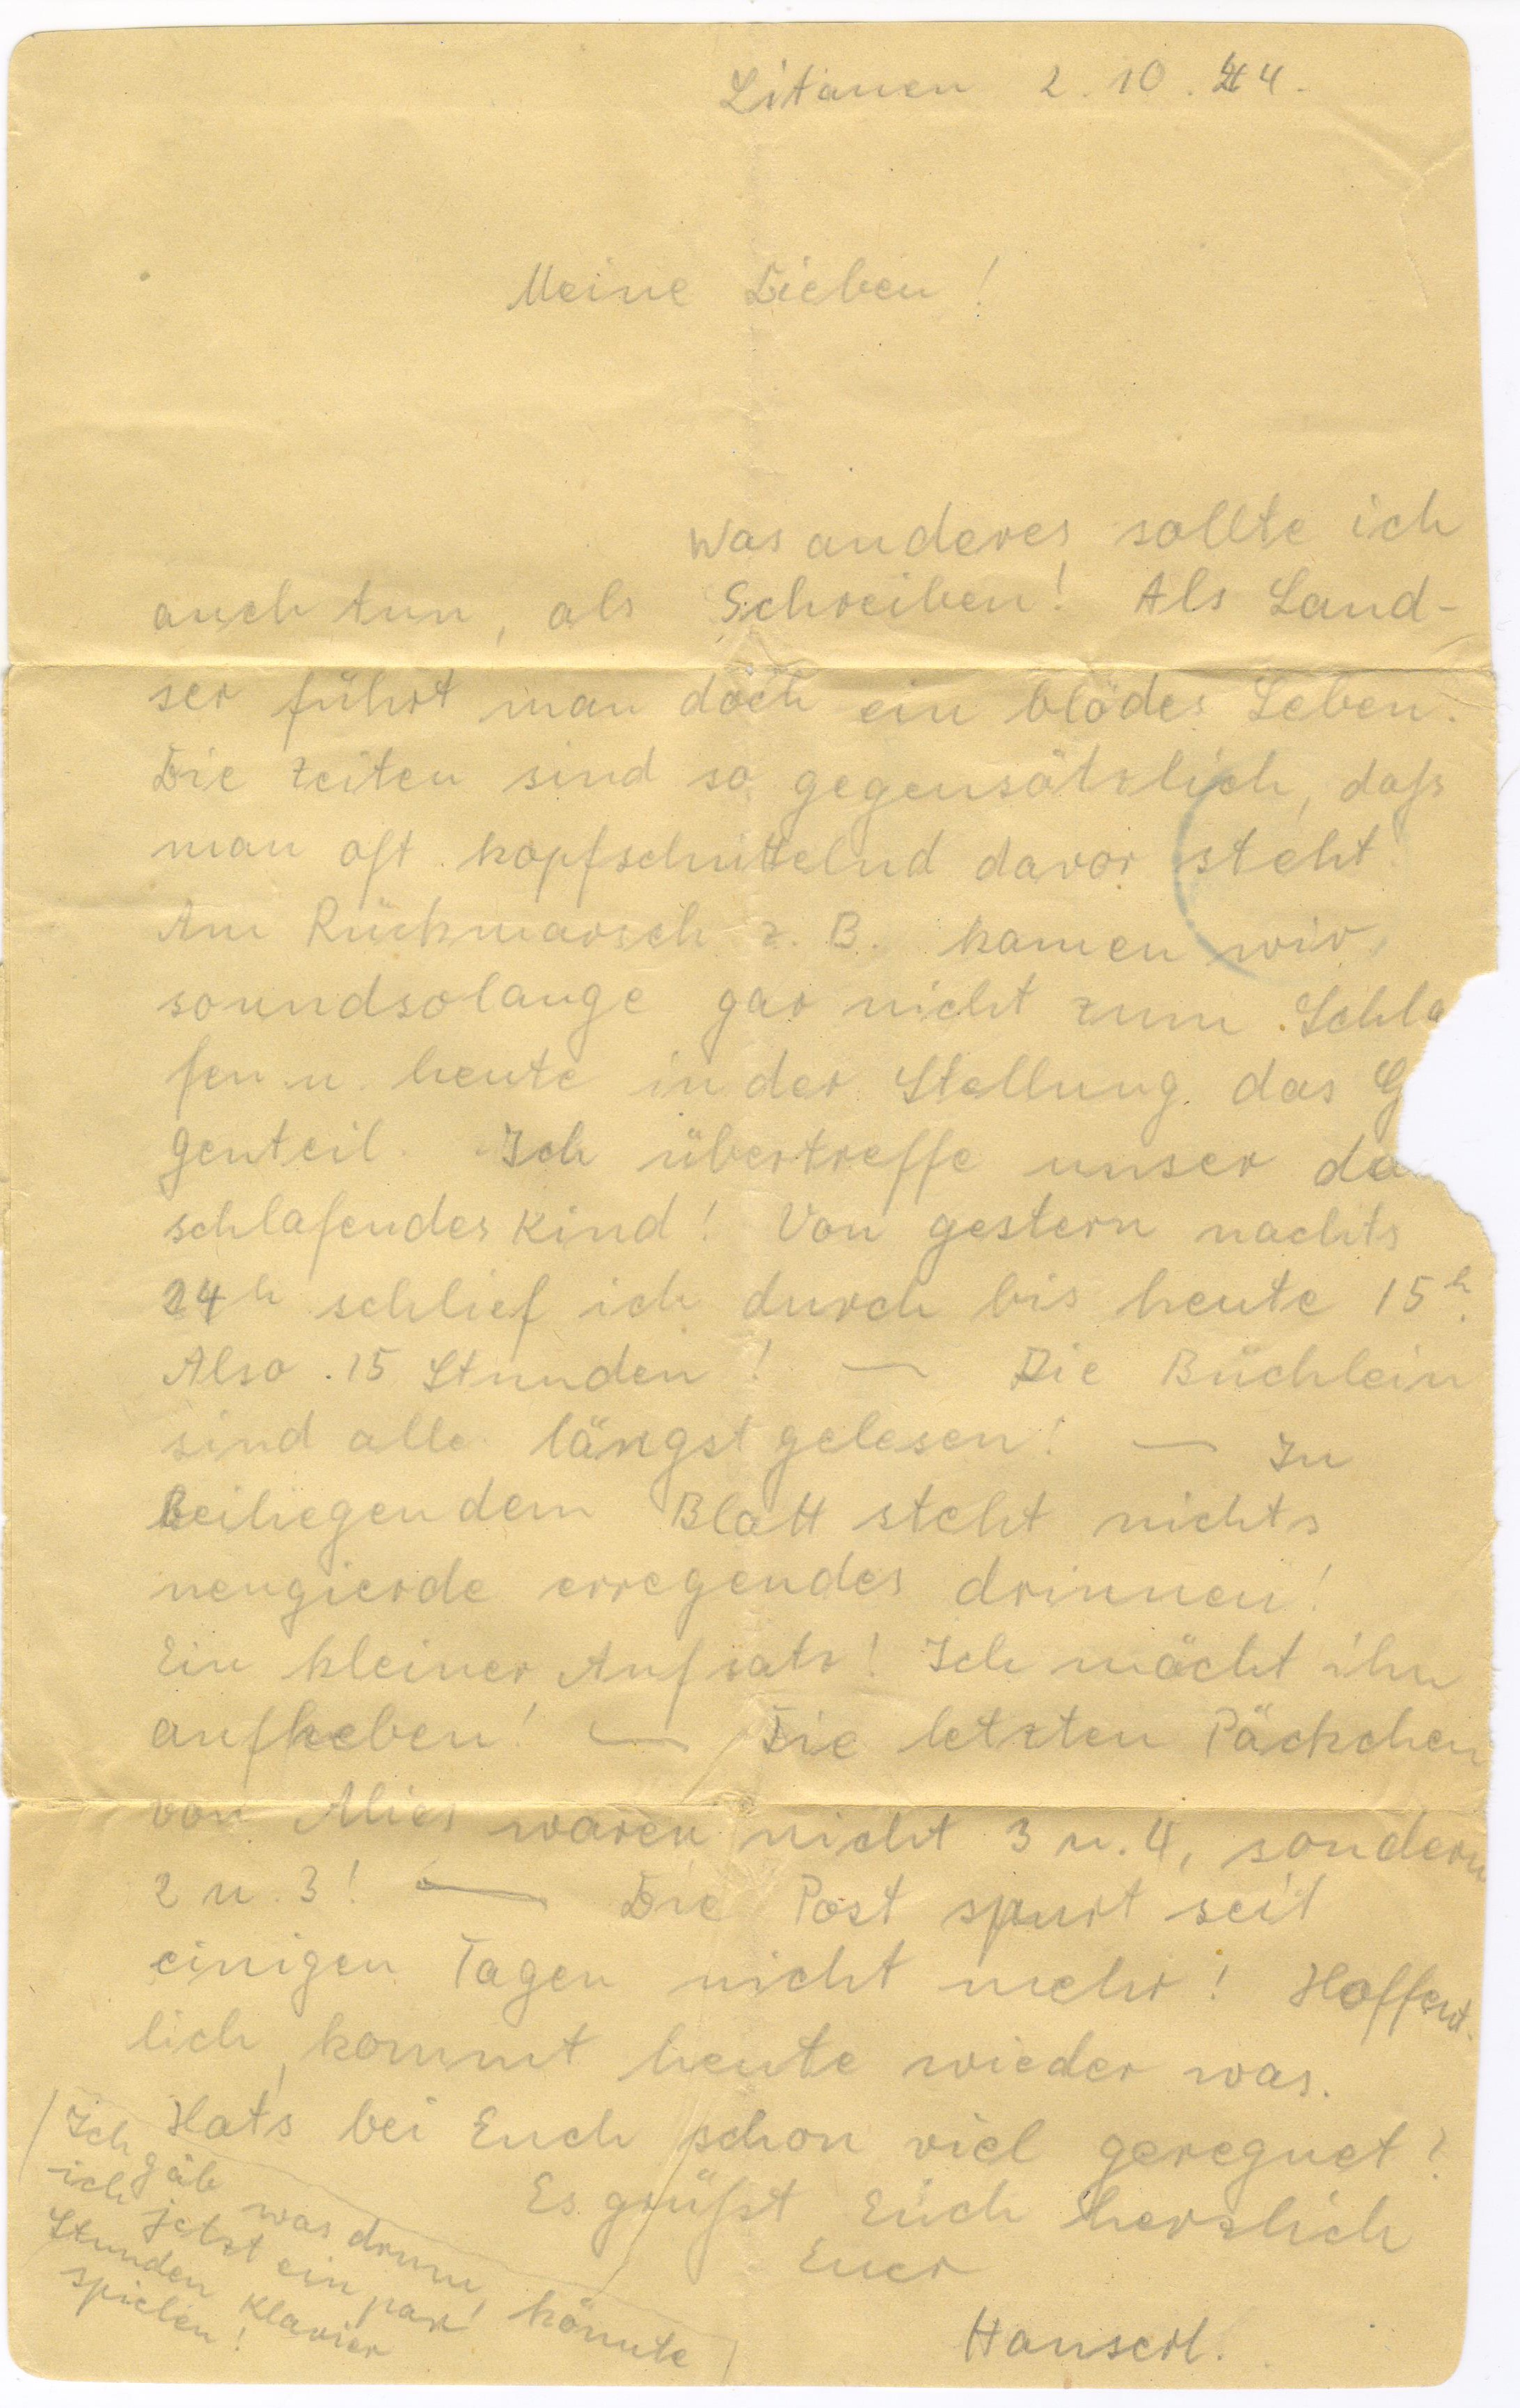 Litauen 2. 10. 44.
Meine Lieben!
Was anderes sollte ich
auch tun, als Schreiben! Als Land-
ser führt man doch ein blödes Leben.
Die Zeiten sind so gegensätzlich, daß
man oft kopfschüttelnd davor steht!
Am Rückmarsch z. B. kamen wir
soundsolange gar nicht zum Schla
fen u. heute in der Stellung das G
genteil. Ich übertreffe unser da
schlafendes Kind! Von gestern nachts
24h schlief ich durch bis heute 15h.
Also 15 Stunden! — Die Büchlein
sind alle längst gelesen! — In
beiliegendem Blatt steht nichts
neugierde erregendes drinnen!
Ein kleiner Aufsatz! Ich möcht ihn
aufheben! — Die letzten Päckchen
von waren nicht 3 u. 4, sondern
2 u. 3! — Die Post spurt seit
einigen Tagen nicht mehr! Hoffent-
lich kommt heute wieder was.
Hats bei Euch schon viel geregnet?
Es grüßt Euch herzlich
Euer
Hanserl.
Ich gäb was drum, könnte
ich jetzt ein paar
Stunden Klavier
spielen!